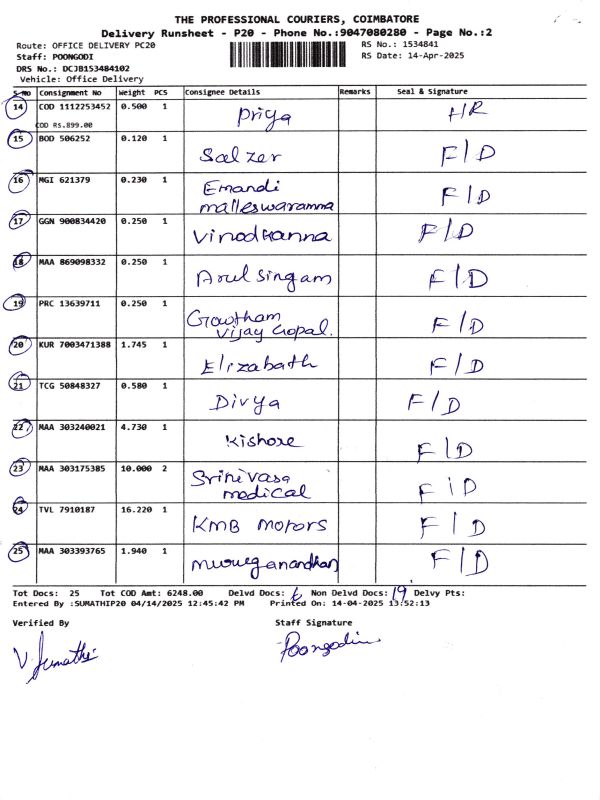 THE PROFESSIONAL COURIERS, COIMBATORE
Delivery Runsheet - P20 - Phone No.:9047080280 - Page No.:2
Route: OFFICE DELIVERY PC20 RS No.: 1534841
Staff: POONGODI RS Date: 14-Apr-2025
DRS No.: DCJB153484102
Vehicle: Office Delivery
S.no Consignment No Weight PCS Consignee Details Remarks Seal & Signature
14 COD 1112253452 0.500 1 Priya HR
COD RS.899.00
15 BOD 506252 0.120 1 Salzer F/D
16 MGI 621379 0.230 1 Emandi F/D
malleswaramma
17 GGN 900834420 0.250 1 Vinodkanna F/D
18 MAA 869098332 0.250 1 Arul Singam F/D
19 PRC 13639711 0.250 1 Gowtham F/D
Vijay Gopal.
20 KUR 7003471388 1.745 1 Elizabath F/D
21 TCG 50848327 0.580 1 Divya F/D
22 MAA 303240021 4.730 1 Kishore F/D
23 MAA 303175385 10.000 2 Srinivasa F/D
medical
24 TVL 7910187 16.220 1 KMB Motors F/D
25 MAA 303393765 1.940 1 F/D
Tot Docs: 25 Tot COD Amt: 6248.00 Delvd Docs: 6 Non Delvd Docs: 19 Delvy Pts:
Entered By :SUMATHIP20 04/14/2025 12:45:42 PM Printed On: 14-04-2025 13:52:13
Verified By Staff Signature
V. Sumathi Poongodi